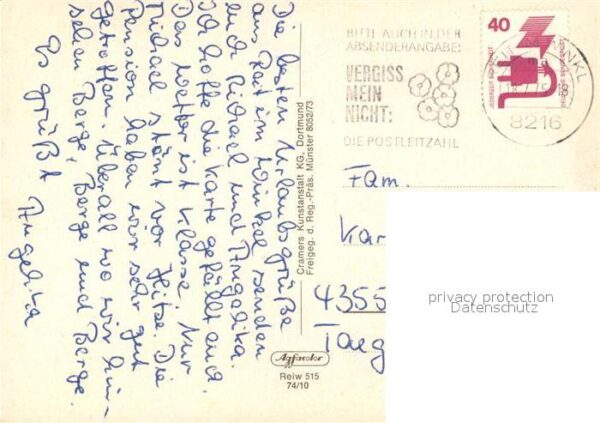 Die besten Urlaubsgrüße
aus Reit im Winkel senden
euch Michael und Angelika.
Ich hoffe die Karte gefällt euch.
Das Wetter ist Klasse. Nur
Michael stönt vor Hitze. Die
Pension haben wir sehr gut
getroffen. Überall wo wir hin-
sehen Berge, Berge und Berge.
Es grüßt Angelika
Cramers Kunstanstalt KG, Dortmund
Freigeg. d. Reg.-Präs. Münster 8052/73
BITTE AUCH IN DER
ABSENDERANGABE:
VERGISS
MEIN
NICHT:
DIE POSTLEITZAHL
40
8216
Fam.
Kar
4355
Taeg
privacy protection
Datenschutz
Agfacolor
Reiw 515
74/10